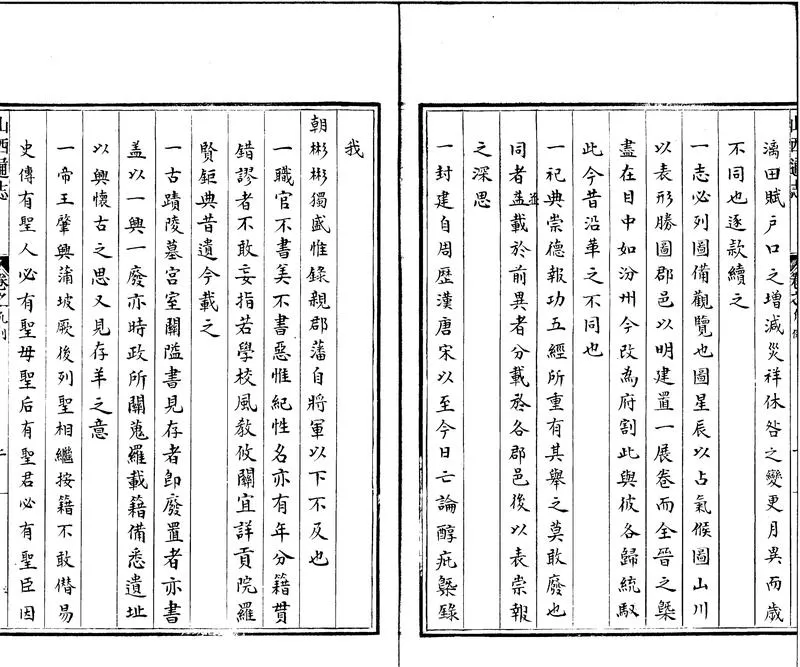 漓田賦戶口之增減災祥休咎之變更月異而歲
不同也逐款續之
一志必列圖備觀覽也圖星辰以占氣候圖山川
以表形勝圖郡邑以明建置一展卷而全晉之槩
盡在目中如汾州今改為府割此與彼各歸統馭
此今昔沿革之不同也
一祀典崇德報功五經所重有其舉之莫敢廢也
同者並載於前異者分載於各郡邑後以表崇報
之深思
一封建自周歷漢唐宋以至今日亡論醇疵槩錄
山西通志
我
朝彬彬獨盛惟錄親郡藩自將軍以下不及也
一職官不書美不書惡惟紀姓名亦有年分籍貫
錯謬者不敢妄指若學校風教攸關宜詳貢院羅
賢鉅典昔遺今載之
一古蹟陵墓宮室關隘書見存者卽廢置者亦書
蓋以一興一廢亦時政所關蒐羅載籍備悉遺址
以興懷古之思又見存羊之意
一帝王肇興蒲坂厥後列聖相繼按籍不敢僭易
史傳有聖人必有聖母聖后有聖君必有聖臣因
山西通志